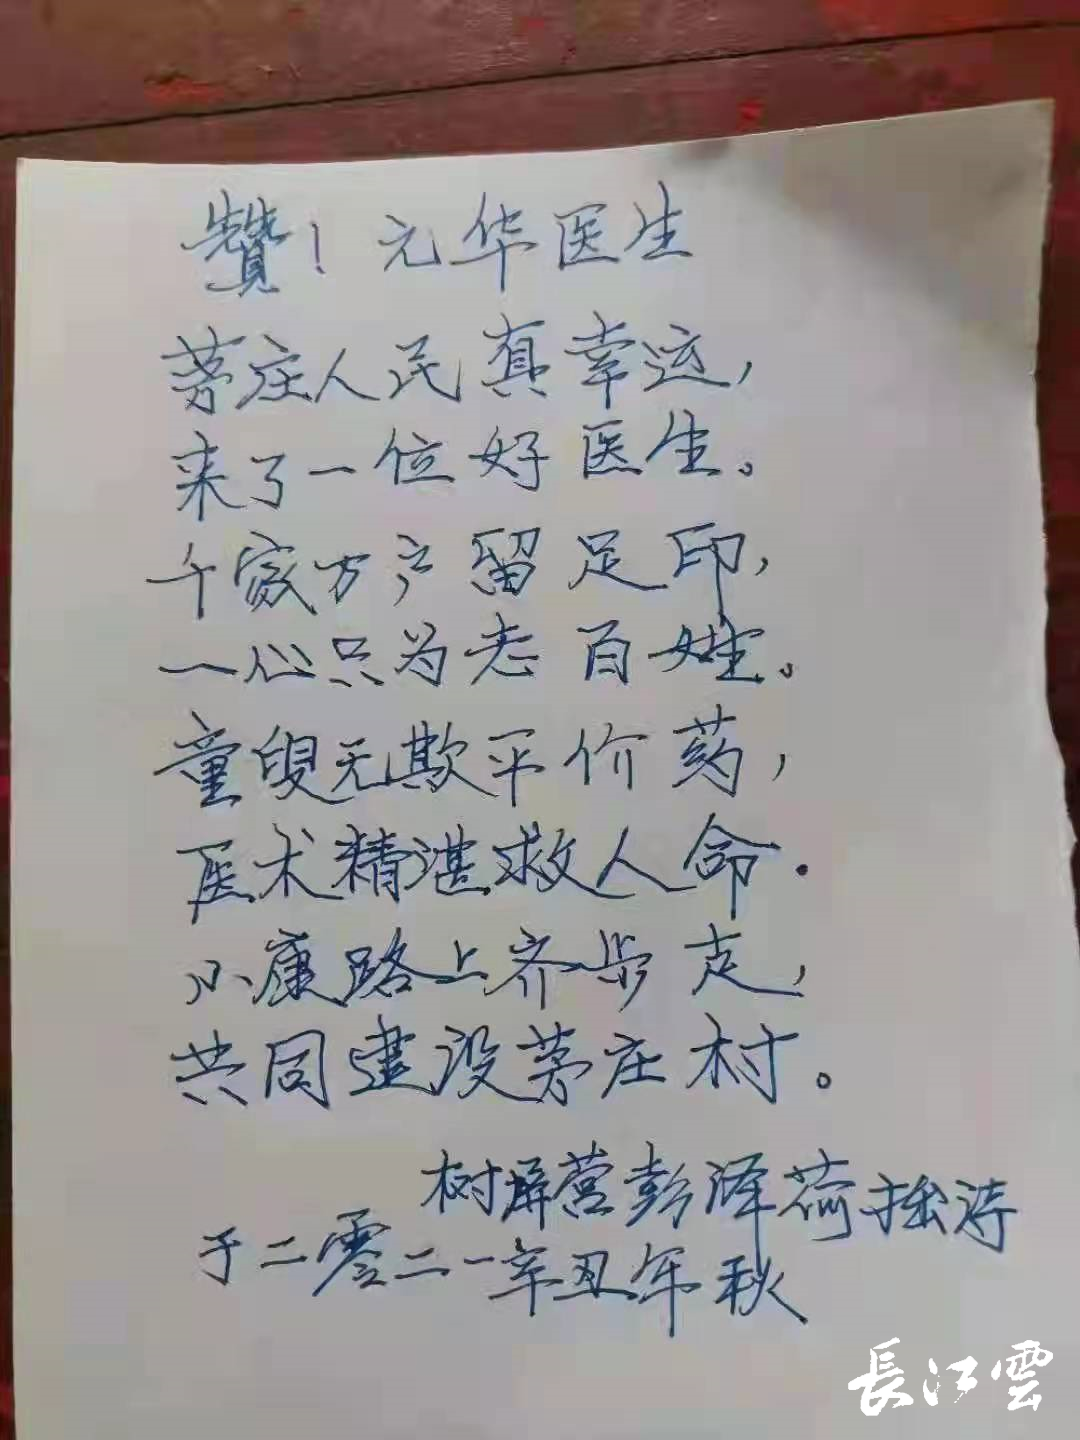 赞！元华医生
茅庄人民真幸运，
来了一位好医生。
千家万户留足印，
一心只为老百姓。
童叟无欺平价药，
医术精湛救人命.
小康路上齐步走，
共同建设茅庄村。
树屏营彭泽荷拙诗
于二零二一辛丑年秋
長江雲